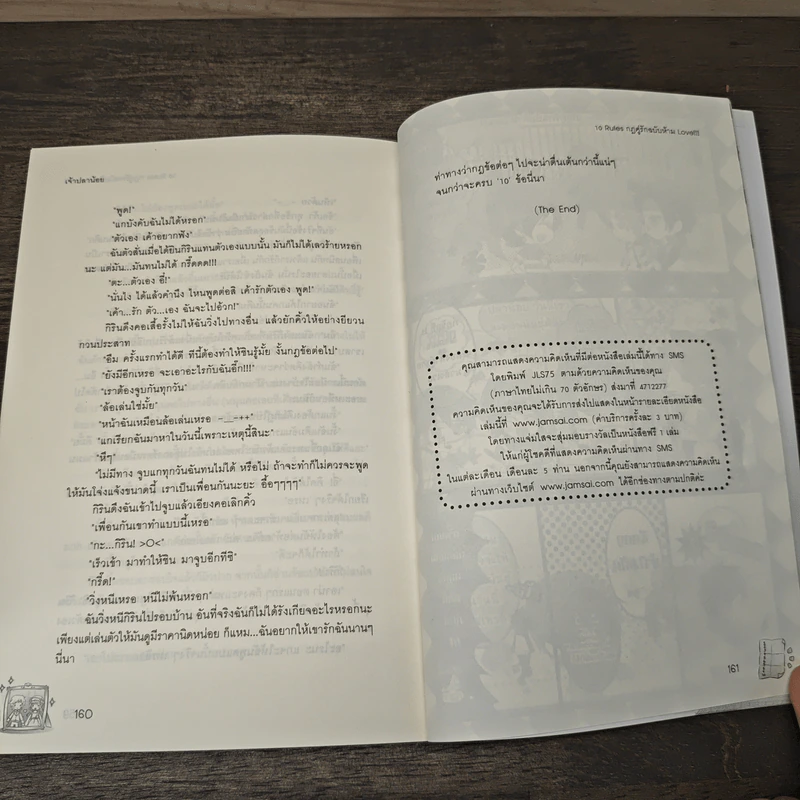 เจ้าปลาน้อย
"พูด!"
"แกบังคับฉันไม่ได้หรอก"
"ตัวเอง เค้าอยากฟัง"
ฉันตัวสั่นเมื่อได้ยินกิรินแทนตัวเองแบบนั้น มันก็ไม่ได้เลวร้ายหรอก
นะ แต่มัน...มันทนไม่ได้ กรี๊ดดด!!!
"ตะ...ตัวเอง อี๋!"
"นั่นไง ได้แล้วคำนึง ไหนพูดต่อสิ เค้ารักตัวเอง พูด!"
"เค้า...รัก ตัว...เอง ฉันจะไปอ้วก!"
กิรินดึงคอเสื้อรั้งไม่ให้ฉันวิ่งไปทางอื่น แล้วยักคิ้วให้อย่างยียวน
กวนประสาท
"อืม ครั้งแรกทำได้ดี ทีนี้ต้องทำให้ชินรู้มั้ย งั้นกฎข้อต่อไป"
"ยังมีอีกเหรอ จะเอาอะไรกับฉันอี๊ก!!!"
"เราต้องจูบกันทุกวัน"
"ล้อเล่นใช่มั้ย"
"หน้าฉันเหมือนล้อเล่นเหรอ -__-++"
"แกเรียกฉันมาหาในวันนี้เพราะเหตุนี้สินะ"
"หึๆ"
"ไม่มีทาง จูบแกทุกวันฉันทนไม่ได้ หรือไม่ ถ้าจะทำก็ไม่ควรจะพูด
ให้มันโจ่งแจ้งขนาดนี้ เราเป็นเพื่อนกันนะยะ อื้อๆๆๆๆ"
กิรินดึงฉันเข้าไปจูบแล้วเอียงคอเลิกคิ้ว
"เพื่อนกันเขาทำแบบนี้เหรอ"
"กะ...กิริน! >O<"
"เร็วเข้า มาทำให้ชิน มาจูบอีกทีซิ"
"กรี๊ด!"
"วิ่งหนีเหรอ หนีไม่พ้นหรอก"
ฉันวิ่งหนีกิรินไปรอบบ้าน อันที่จริงฉันก็ไม่ได้รังเกียจอะไรหรอกนะ
เพียงแต่เล่นตัวให้มันดูมีราคานิดหน่อย ก็แหม...ฉันอยากให้เขารักฉันนานๆ
นี่นา
160
10 Rules กฎคู่รักฉบับห้าม Love!!!
ท่าทางว่ากฎข้อต่อๆ ไปจะน่าตื่นเต้นกว่านี้แน่ๆ
จนกว่าจะครบ '10' ข้อนี่นา
(The End)
คุณสามารถแสดงความคิดเห็นที่มีต่อหนังสือเล่มนี้ได้ทาง SMS
โดยพิมพ์ JLS75 ตามด้วยความคิดเห็นของคุณ
(ภาษาไทยไม่เกิน 70 ตัวอักษร) ส่งมาที่ 4712277
ความคิดเห็นของคุณจะได้รับการส่งไปแสดงในหน้ารายละเอียดหนังสือ
เล่มนี้ที่ www.jamsai.com (ค่าบริการครั้งละ 3 บาท)
โดยทางแจ่มใสจะสุ่มมอบรางวัลเป็นหนังสือฟรี 1 เล่ม
ให้แก่ผู้โชคดีที่แสดงความคิดเห็นผ่านทาง SMS
ในแต่ละเดือน เดือนละ 5 ท่าน นอกจากนี้คุณยังสามารถแสดงความคิดเห็น
ผ่านทางเว็บไซต์ www.jamsai.com ได้อีกช่องทางตามปกติค่ะ
161